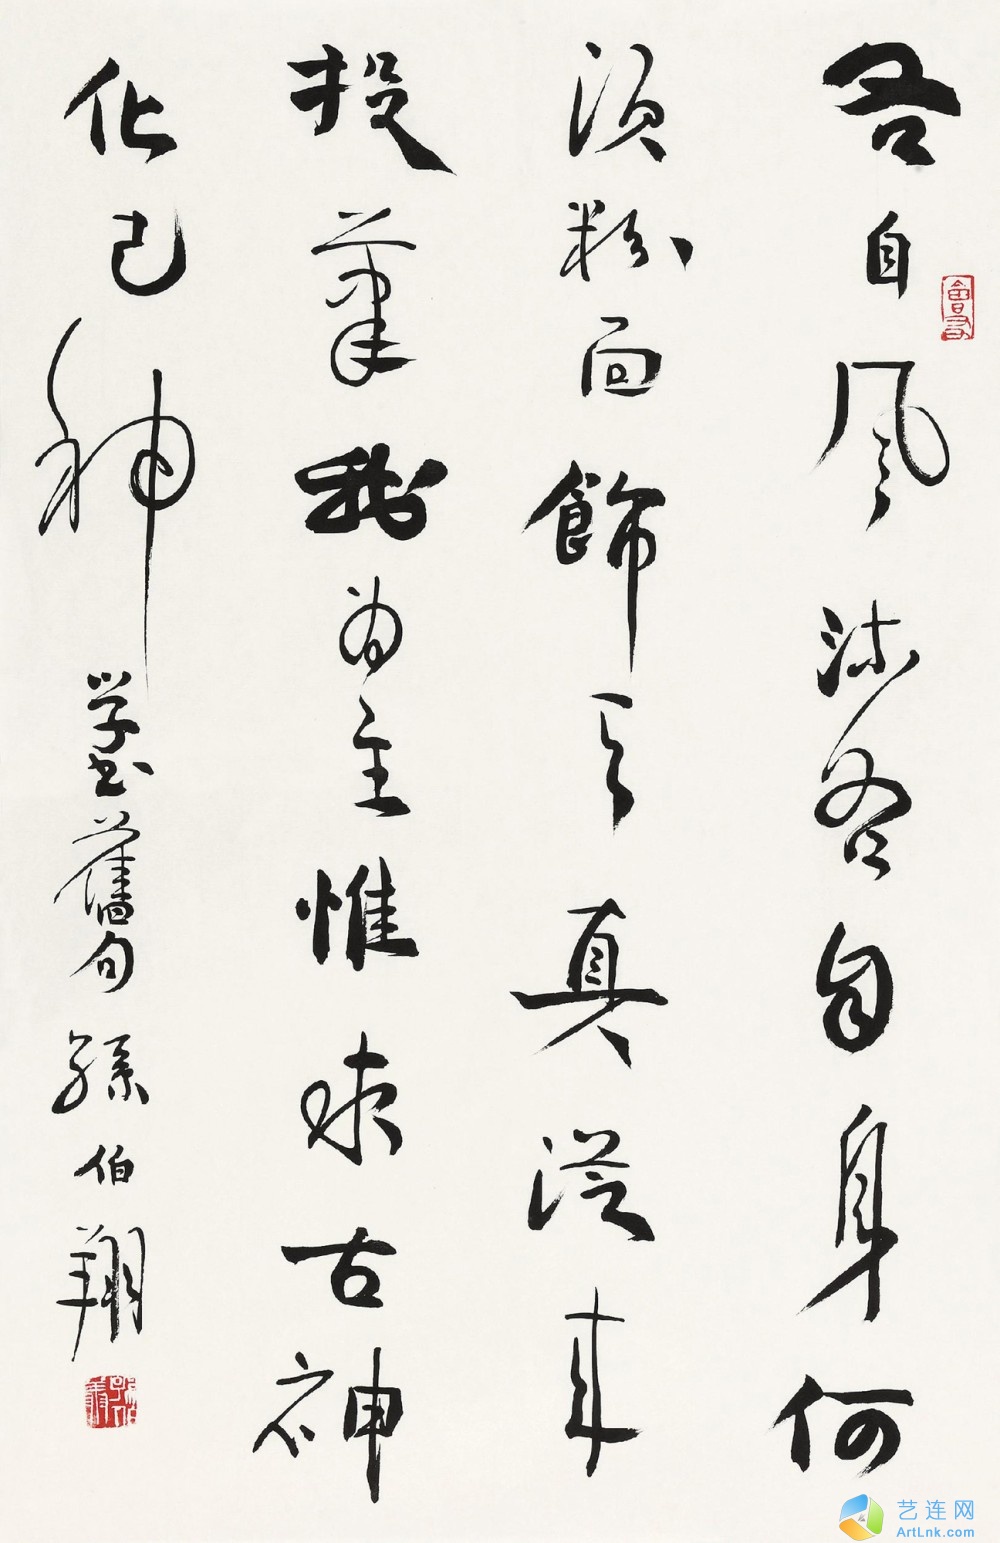 各自風流各自身何
須粉面飾其真從來
投筆我為主惟求古神
化己神
学書舊句孫伯翔
艺连网
ArtLnk.com